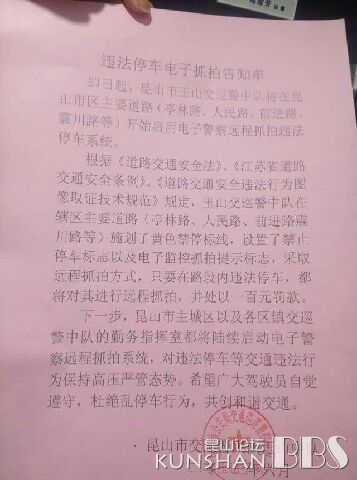 违法停车电子抓拍告知单
即日起，昆山市玉山交巡警中队将在昆
山市区主要道路（亭林路、人民路、前进路、
震川路等）开始启用电子警察远程抓拍违法
停车系统。
根据《道路交通安全法》、《江苏省道路
交通安全条例》、《道路交通安全违法行为图
像取证技术规范》规定，玉山交巡警中队在
辖区主要道路（亭林路、人民路、前进路震
川路等）施划了黄色禁停标线，设置了禁止
停车标志以及电子监控抓拍提示标志，采取
远程抓拍方式，只要在路段内违法停车，都
将对其进行远程抓拍，并处以一百元罚款。
下一步，昆山市主城区以及各区镇交巡
警中队的勤务指挥室都将陆续启动电子警
察远程抓拍系统，对违法停车等交通违法行
为保持高压严管态势。希望广大驾驶员自觉
遵守，杜绝乱停车行为，共创和谐交通。
昆山市交
年六月
昆山论坛
KUNSHAN BBS